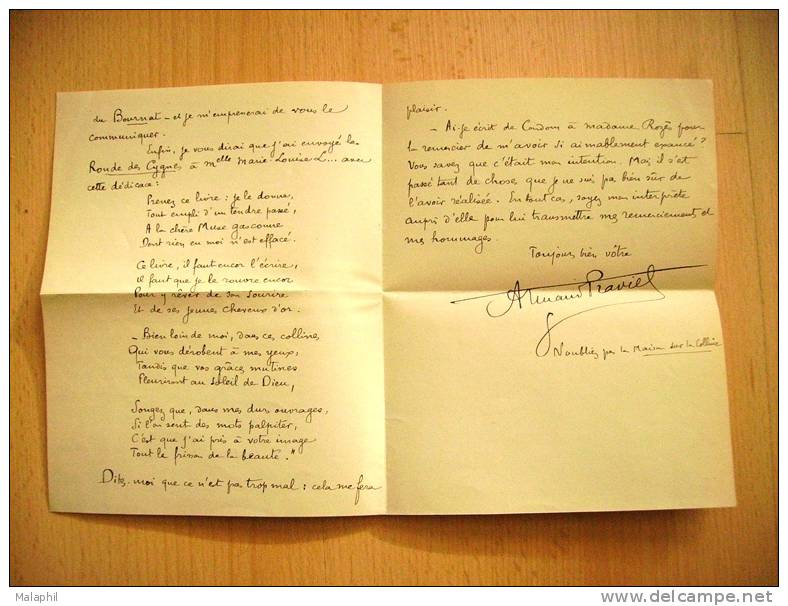 du Bournat – et je m'empresserai de vous le
communiquer.
Enfin, je vous dirai que j'ai envoyé la
Ronde des Cygnes à Melle Marie-Louise L... avec
cette dédicace :
Prenez ce livre : je le donne,
Tout empli d'un tendre passé,
A la chère Muse gasconne
Dont rien en moi n'est effacé.
Ce livre, il faut encor l'écrire,
Il faut que je le rouvre encor
Pour y rêver de son sourire
Et de ses jeunes cheveux d'or.
– Bien loin de moi, dans ces collines
Qui vous dérobent à mes yeux,
Tandis que vos grâces mutines
Fleuriront au soleil de Dieu,
Songez que, dans mes durs ouvrages,
Si l'ai sent des mots palpiter,
C'est que j'ai pris à votre image
Tout le frisson de la beauté."
Dites-moi que ce n'est pas trop mal : cela me fera
plaisir.
– Ai-je écrit de Condom à madame Rozès pour
la remercier de m'avoir si aimablement exaucé ?
Vous savez que c'était mon intention. Mais il s'est
passé tant de choses que je ne suis pas bien sûr de
l'avoir réalisée. En tout cas, soyez mon interprète
auprès d'elle pour lui transmettre mes remerciements et
mes hommages.
Toujours bien vôtre
Armand Praviel
N'oubliez pas la Maison sur la Colline
Malaphil
delcampe.net